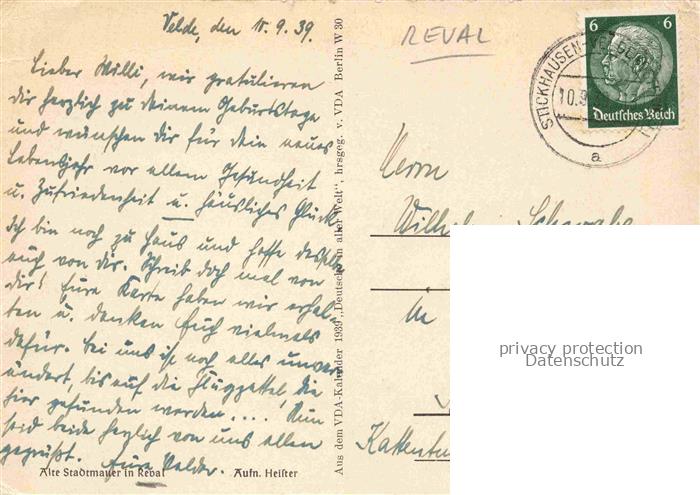 Velde, den 10.9.39.
Lieber Willi, wir gratulieren
dir herzlich zu deinem Geburtstage
und wünschen dir für dein neues
Lebensjahr vor allem Gesundheit
u. Zufriedenheit u. häusliches Glück.
Ich bin noch zu Haus und hoffe dasselbe
auch von dir. Schreib doch mal von
dir! Eure Karte haben wir erhal-
ten u. danken Euch vielmals
dafür. Bei uns ist noch alles unver-
ändert, bis auf die Flugzettel, die
hier gefunden werden.... Nun
seid beide herzlich von uns allen
gegrüßt. Eure Velder.
Alte Stadtmauer in Reval Aufn. Heister
Aus dem VDA-Kalender 1939 „Deutsche in aller Welt“, hrsgeg. v. VDA Berlin W 30
REVAL
STICKHAUSEN-VELDE
10.9
a
6 6
Deutsches Reich
Herrn
Wilhelm Schwabe
in
privacy protection
Datenschutz